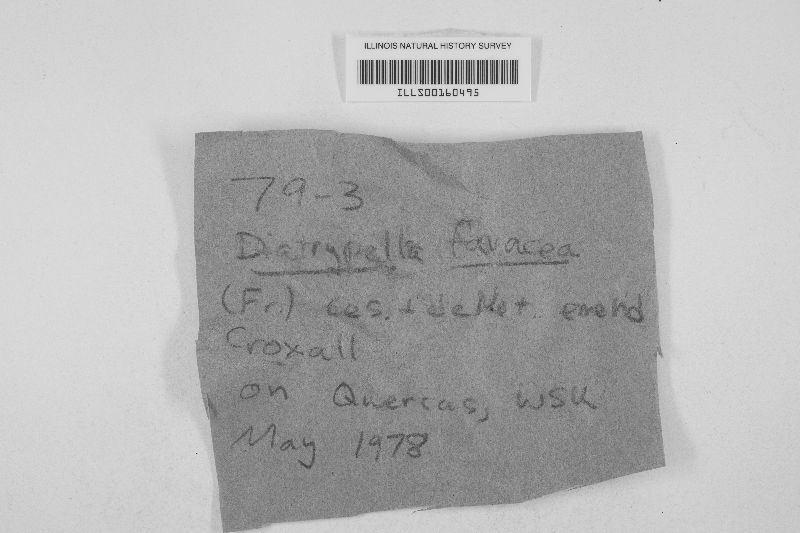 ILLINOIS NATURAL HISTORY SURVEY
ILLS00160495
79-3
Diatrypella favacea
(Fr.) Ces. + deNot. emend
Croxall
on Quercus, WSU
May 1978